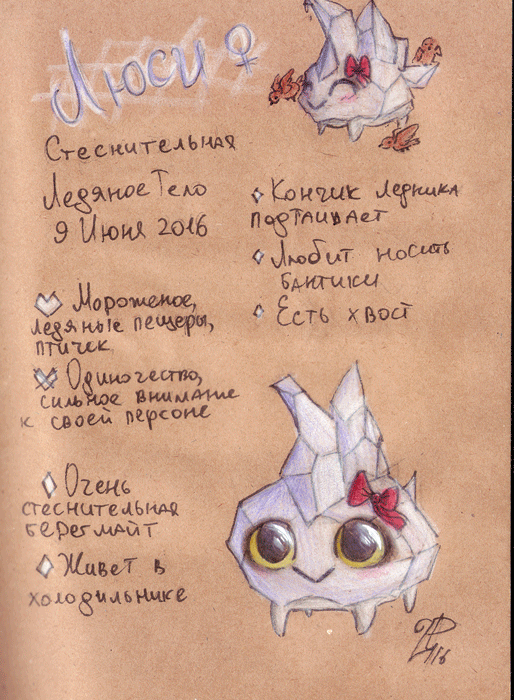 Люси ♀
Стеснительная
Ледяное Тело
9 Июня 2016
Мороженое,
ледяные пещеры,
птичек
Одиночество,
сильное внимание
к своей персоне
Очень
стеснительная
бергмайт
Живет в
холодильнике
Кончик ледника
подтаивает
Любит носить
бантики
Есть хвост